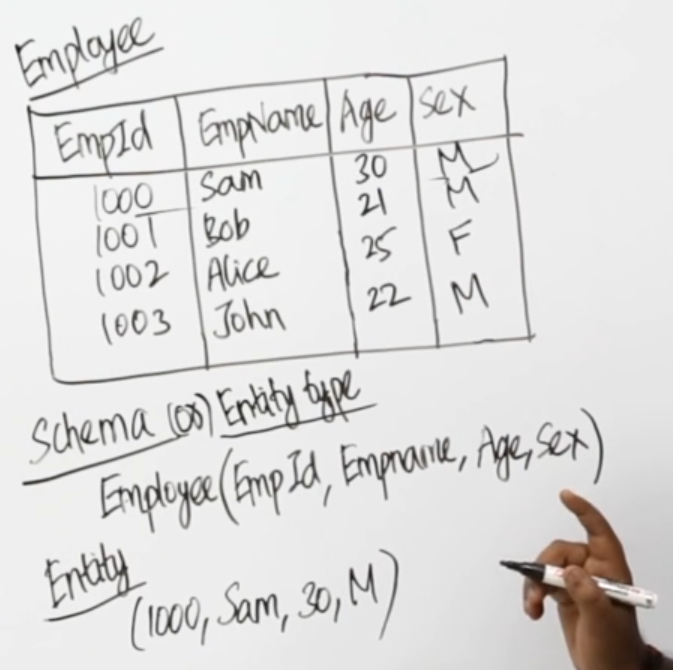 Employee
EmpId EmpName Age Sex
1000 Sam 30 M
1001 Bob 21 M
1002 Alice 25 F
1003 John 22 M
Schema (or) Entity type
Employee(EmpId, Empname, Age, Sex)
Entity
(1000, Sam, 30, M)